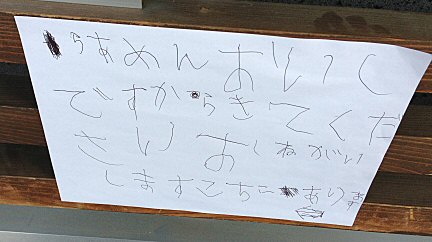 らあめんおいしい
ですからきてくだ
さいおねがい
しますこちにあります